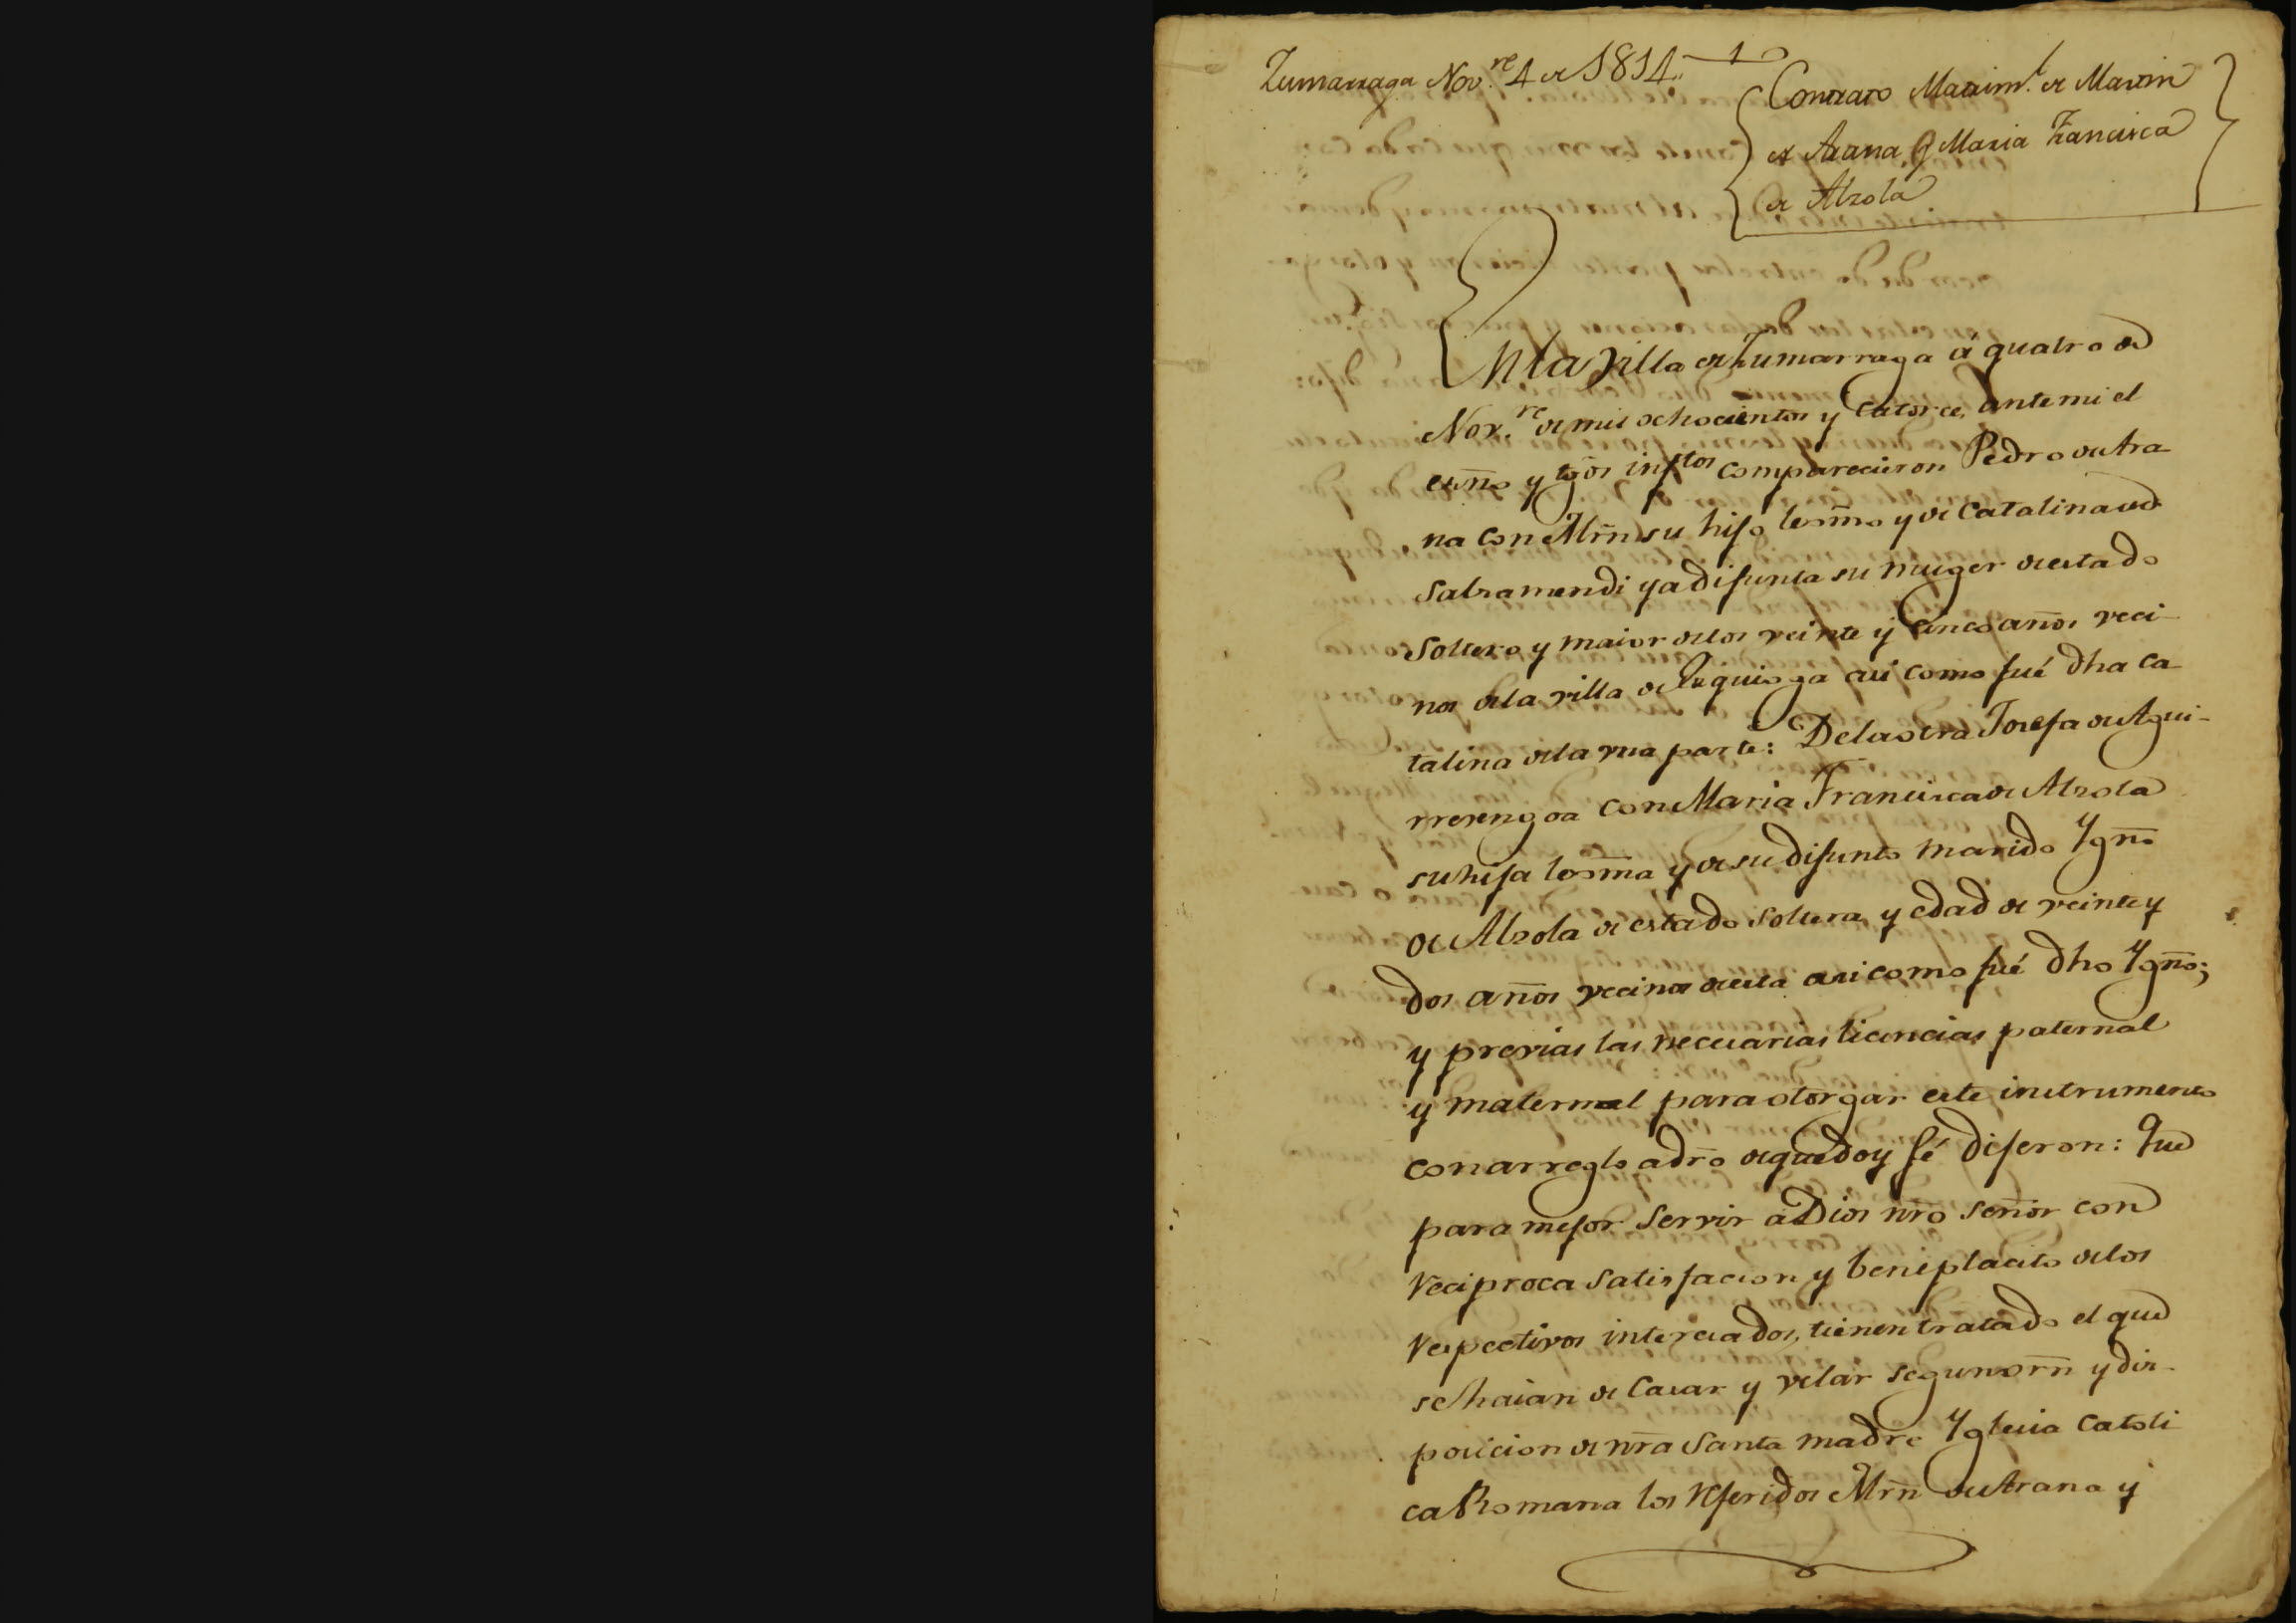 Zumarraga Nov.re 4 de 1814.
Contrato Matrim.l de Martin
de Arana, y Maria Francisca
de Alzola
En la Villa de Zumarraga á quatro de
Nov.re de mil ochocientos y catorce, ante mi el
esc̃no y tg̃os inf.tos comparecieron Pedro de Ara-
na con Mrñ su hijo lexm̃o y de Catalina de
Salramendi ya difunta su muger de estado
soltero y maior de los veinte y cinco años veci-
nos de la villa de Ezquioga asi como fué dha Ca-
talina de la una parte: De la otra Josefa de Agui-
rresengoa con Maria Francisca de Alzola
su hija lexm̃a y de su difunto marido Ygñ.o
de Alzola de estado soltera y edad de veinte y
dos años vecinos de esta asi como fué dho Ygño;
y previas las necesarias licencias paternal
y maternal para otorgar este instrumento
con arreglo a dr̃o de que doy fé dijeron: Que
para mejor servir a Dios nr̃o señor con
reciproca satisfacion y beneplacito de los
respectivos interesados, tienen tratado el que
se haian de casar y velar segun orñ y dis-
posicion de nr̃a Santa madre Yglesia Catoli
ca Romana los referidos Mrñ de Arana y